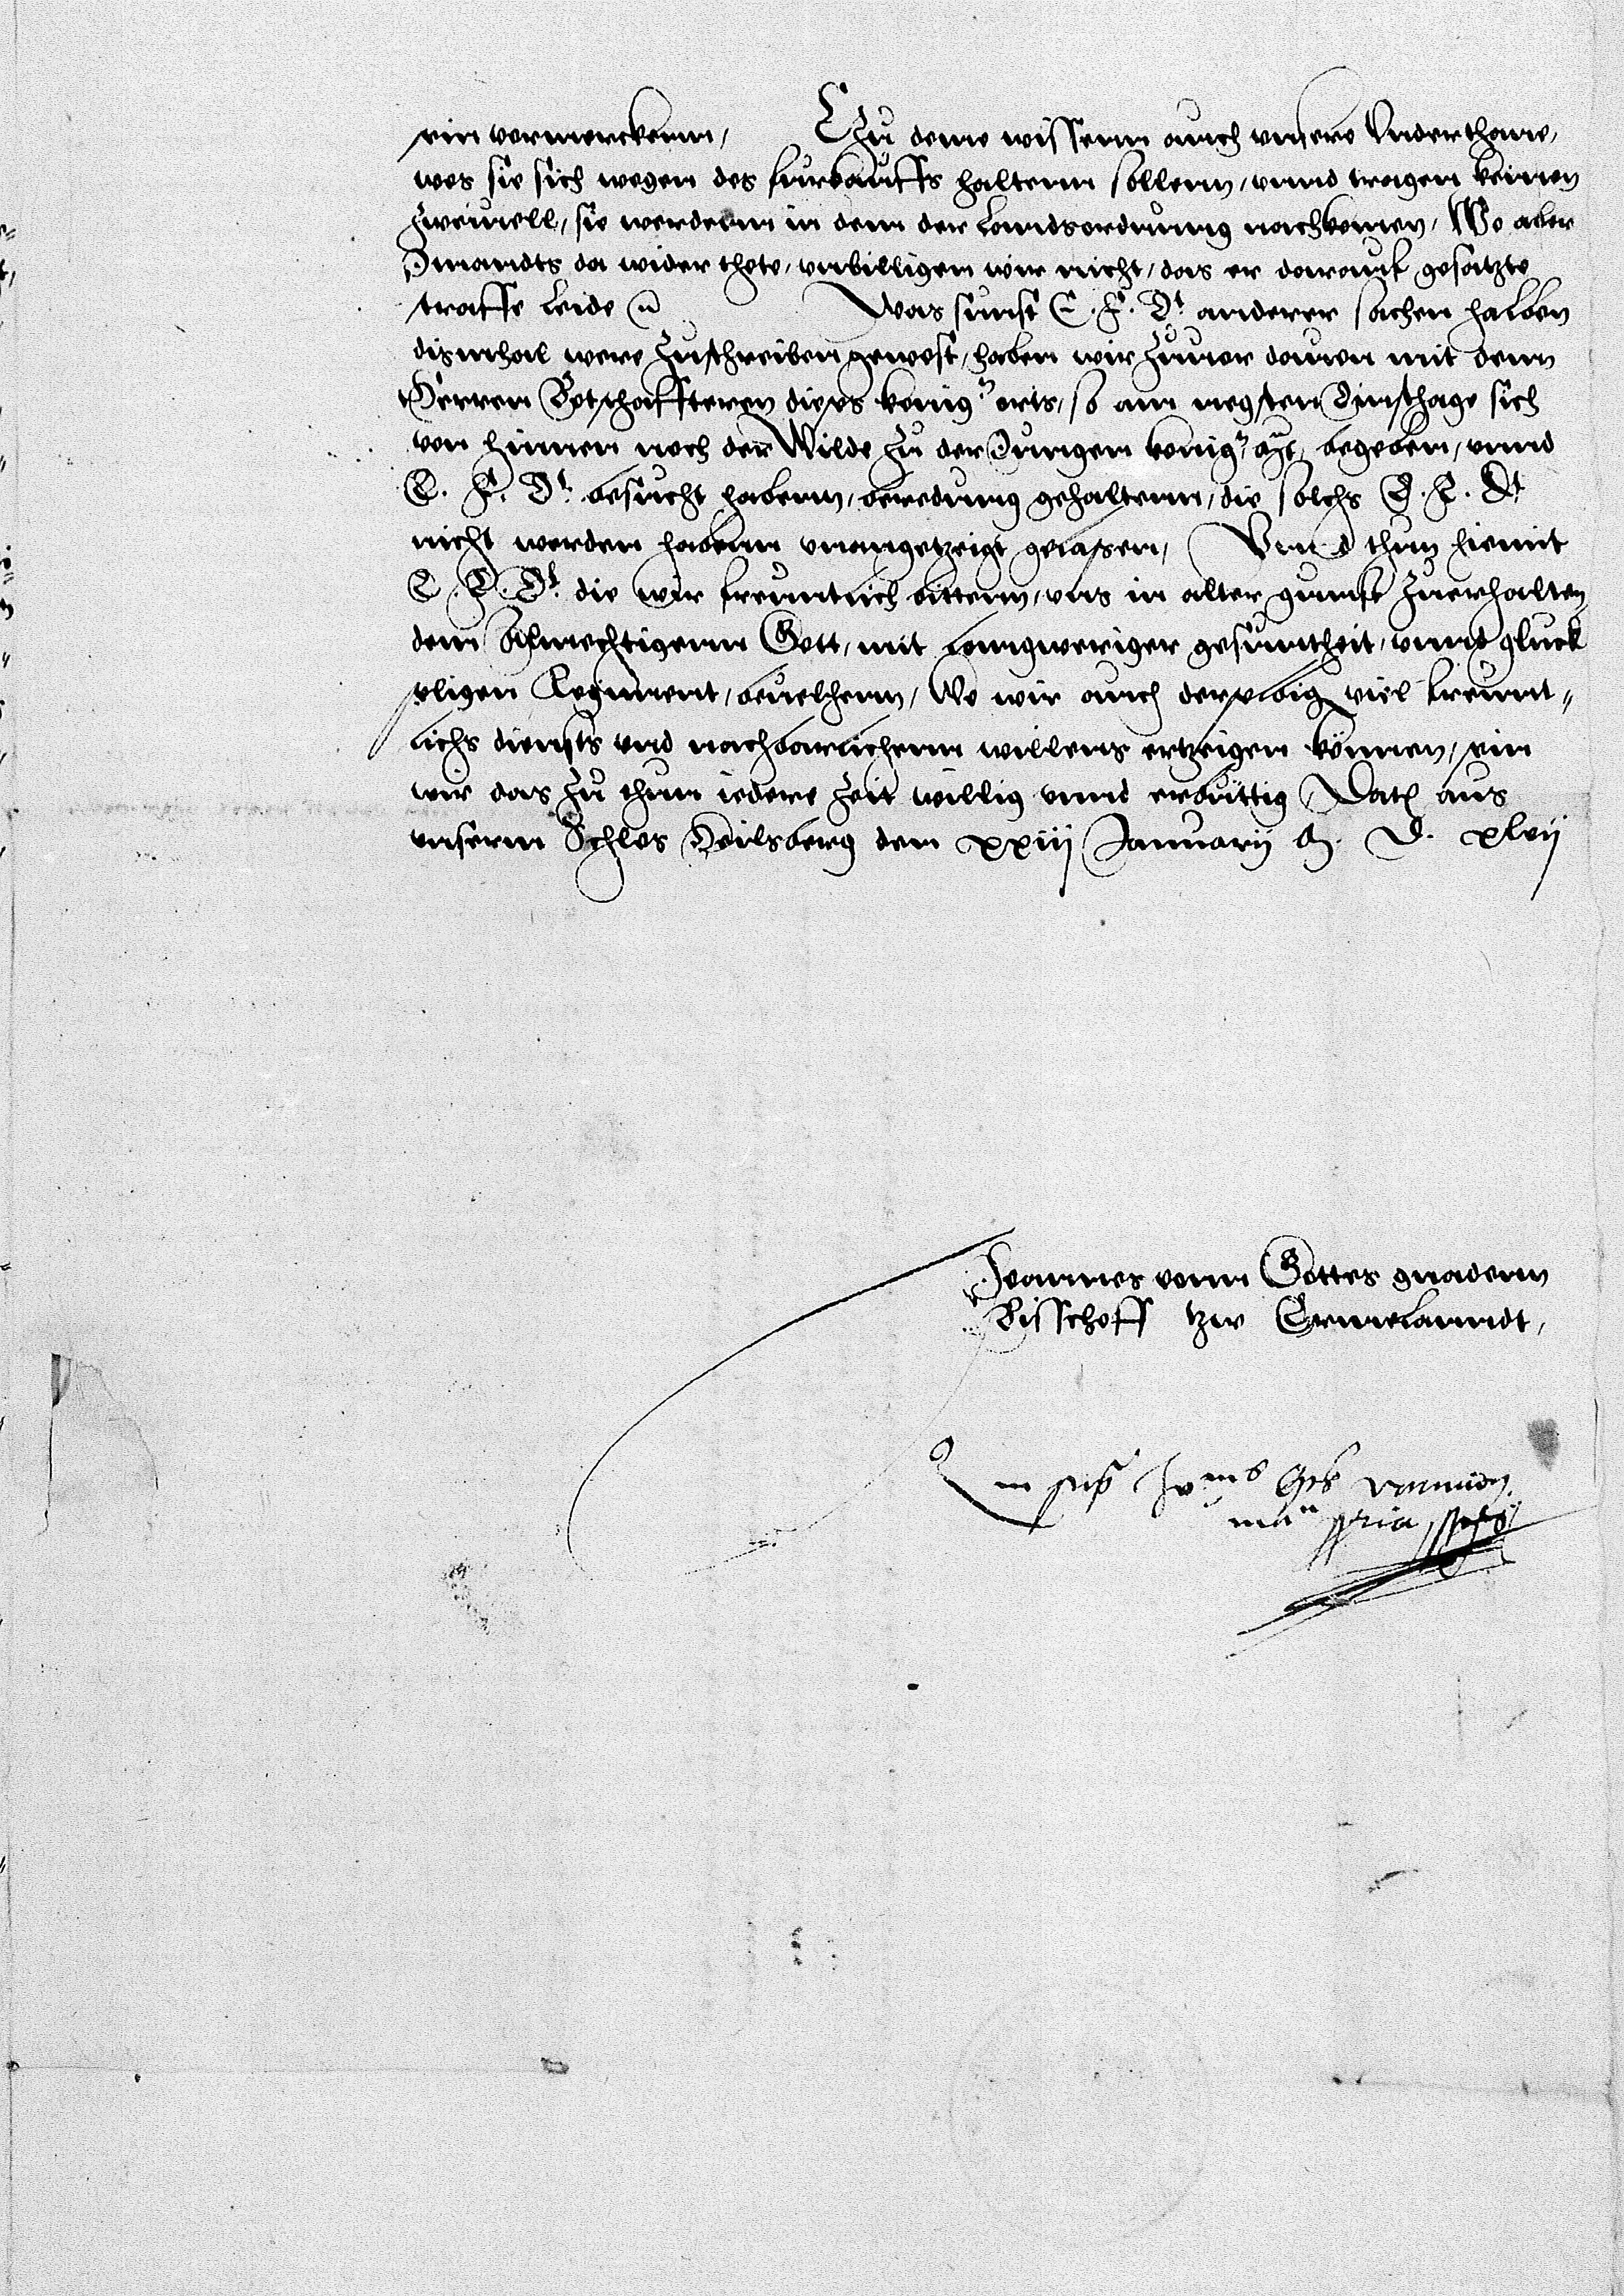 ein vormerckenn, Zu deme wissenn auch vnsere Vnderthane,
wes sie sich wegen des furkauffs haltenn sollenn, vnnd tragen keinen
Zweiuell, sie werdenn in dem der Landsordnung nachkomen, Wo aber
Imandts da wider thete, vnbilligen wir nicht, das er darauf gesatzte
straffe leide Was sunst E. F. Dt anderer sachen halben
dismhal were Zuschreiben gewest, haben wir Zuuor dauon mit denn
Herren Botschaffteren dieses konigr orts, so am negsten Dinsthage sich
von hinnen noch der Wilde Zu der Jungen konigr begeben, vnnd
E. F. Dt besucht habenn, beredung gehaltenn, die solchs E. F. Dt
nicht werden habenn vnangetzeigt gelassen, Vnnd thun hiemit
E. F. Dt die wir freuntlich bittenn, vns in alter gunst Zuerhalten
dem Almechtigenn Gott, mit langweriger gesuntheit, vnnd gluck
seligen Regiment, beuelhenn, Wo wir auch derselbig viel freunt„
lichs diensts vnd nachbarlichenn willens ertzeigen können, sein
wir das Zu thun iedere Zeit willig vnnd erbuttig Datj aus
vnserm Schlos Heilsberg den xxiij Januarij M. D. xlvij
Joannes vonn Gottes gnadenn
Bisschoff tzw Ermelanndt,
Qui supra Jo Eps
manu ppria sspt